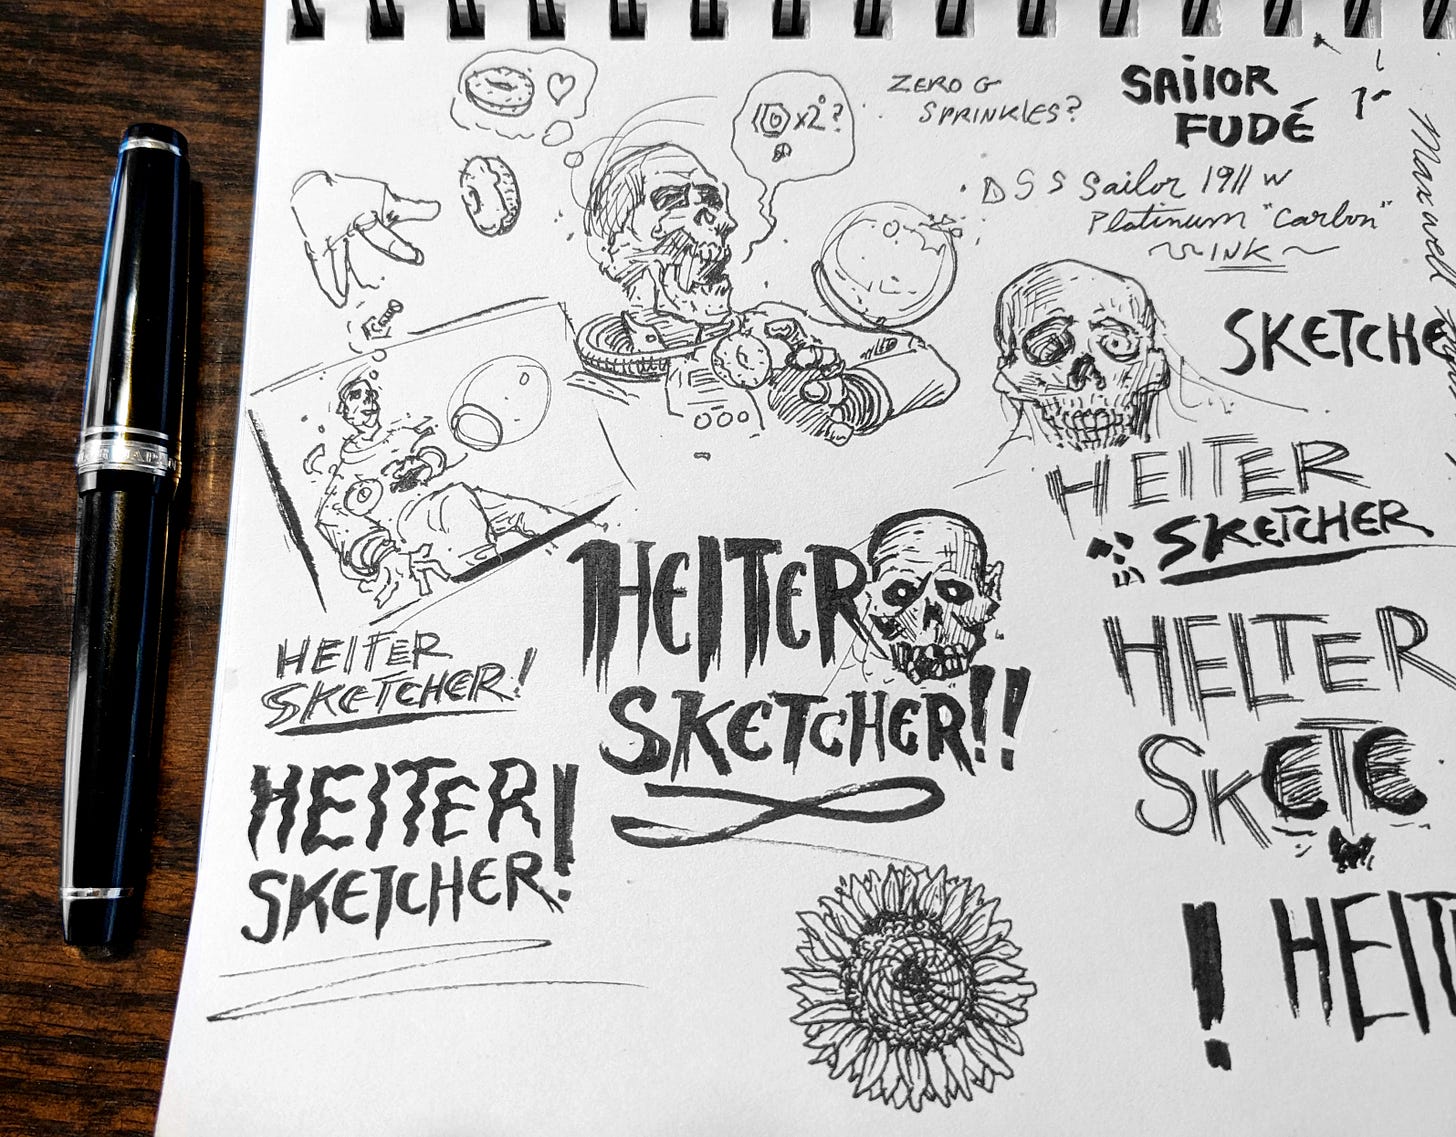 ZERO G
SPRINKLES?
SAilOR
FUDÉ
x2?
DSS Sailor 1911 W
Platinum "Carbon"
INK
Maxwell
SKETCHE
HElTER
SKETCHER
HElTER
SKETCHER!!
HElTER
SKETCHER!
HELTER
SKETC
HElTER
SKETCHER!
! HElT